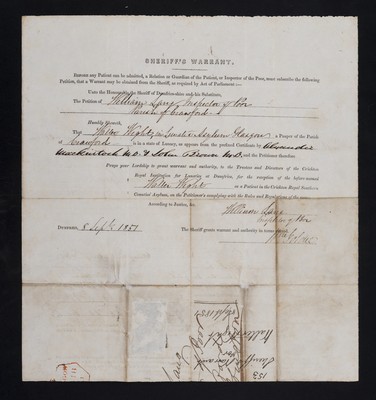 SHERIFF'S WARRANT.
BEFORE any Patient can be admitted, a Relation or Guardian of the Patient, or Inspector of the Poor, must subscribe the following
Petition, that a Warrant may be obtained from the Sheriff, as required by Act of Parliament:—
Unto the Honourable the Sheriff of Dumfries-shire and his Substitutes,
The Petition of William Lang, Inspector of Poor
Parish of Crawford
Humbly Sheweth,
That Walter Wight, in Lunatic Asylum Glasgow a Pauper of the Parish
of Crawford is in a state of Lunacy, as appears from the prefixed Certificate by Alexander
Mackintosh M.D. & John Brown M.D. and the Petitioner therefore
Prays your Lordship to grant warrant and authority, to the Trustees and Directors of the Crichton
Royal Institution for Lunatics at Dumfries, for the reception of the before-named
Walter Wight as a Patient in the Crichton Royal Southern
Counties' Asylum, on the Petitioner's complying with the Rules and Regulations of the same.
According to Justice, &c.
William Lang
Inspector of Poor
DUMFRIES, 8 Sept. 1851 The Sheriff grants warrant and authority to
Walter Wight
153